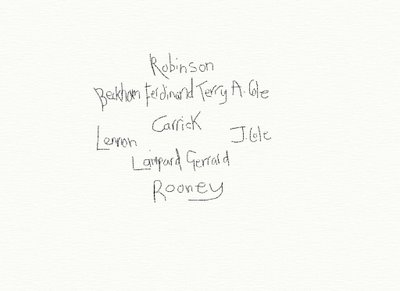 Robinson
Beckham Ferdinand Terry A. Cole
Carrick
Lennon J. Cole
Lampard Gerrard
Rooney